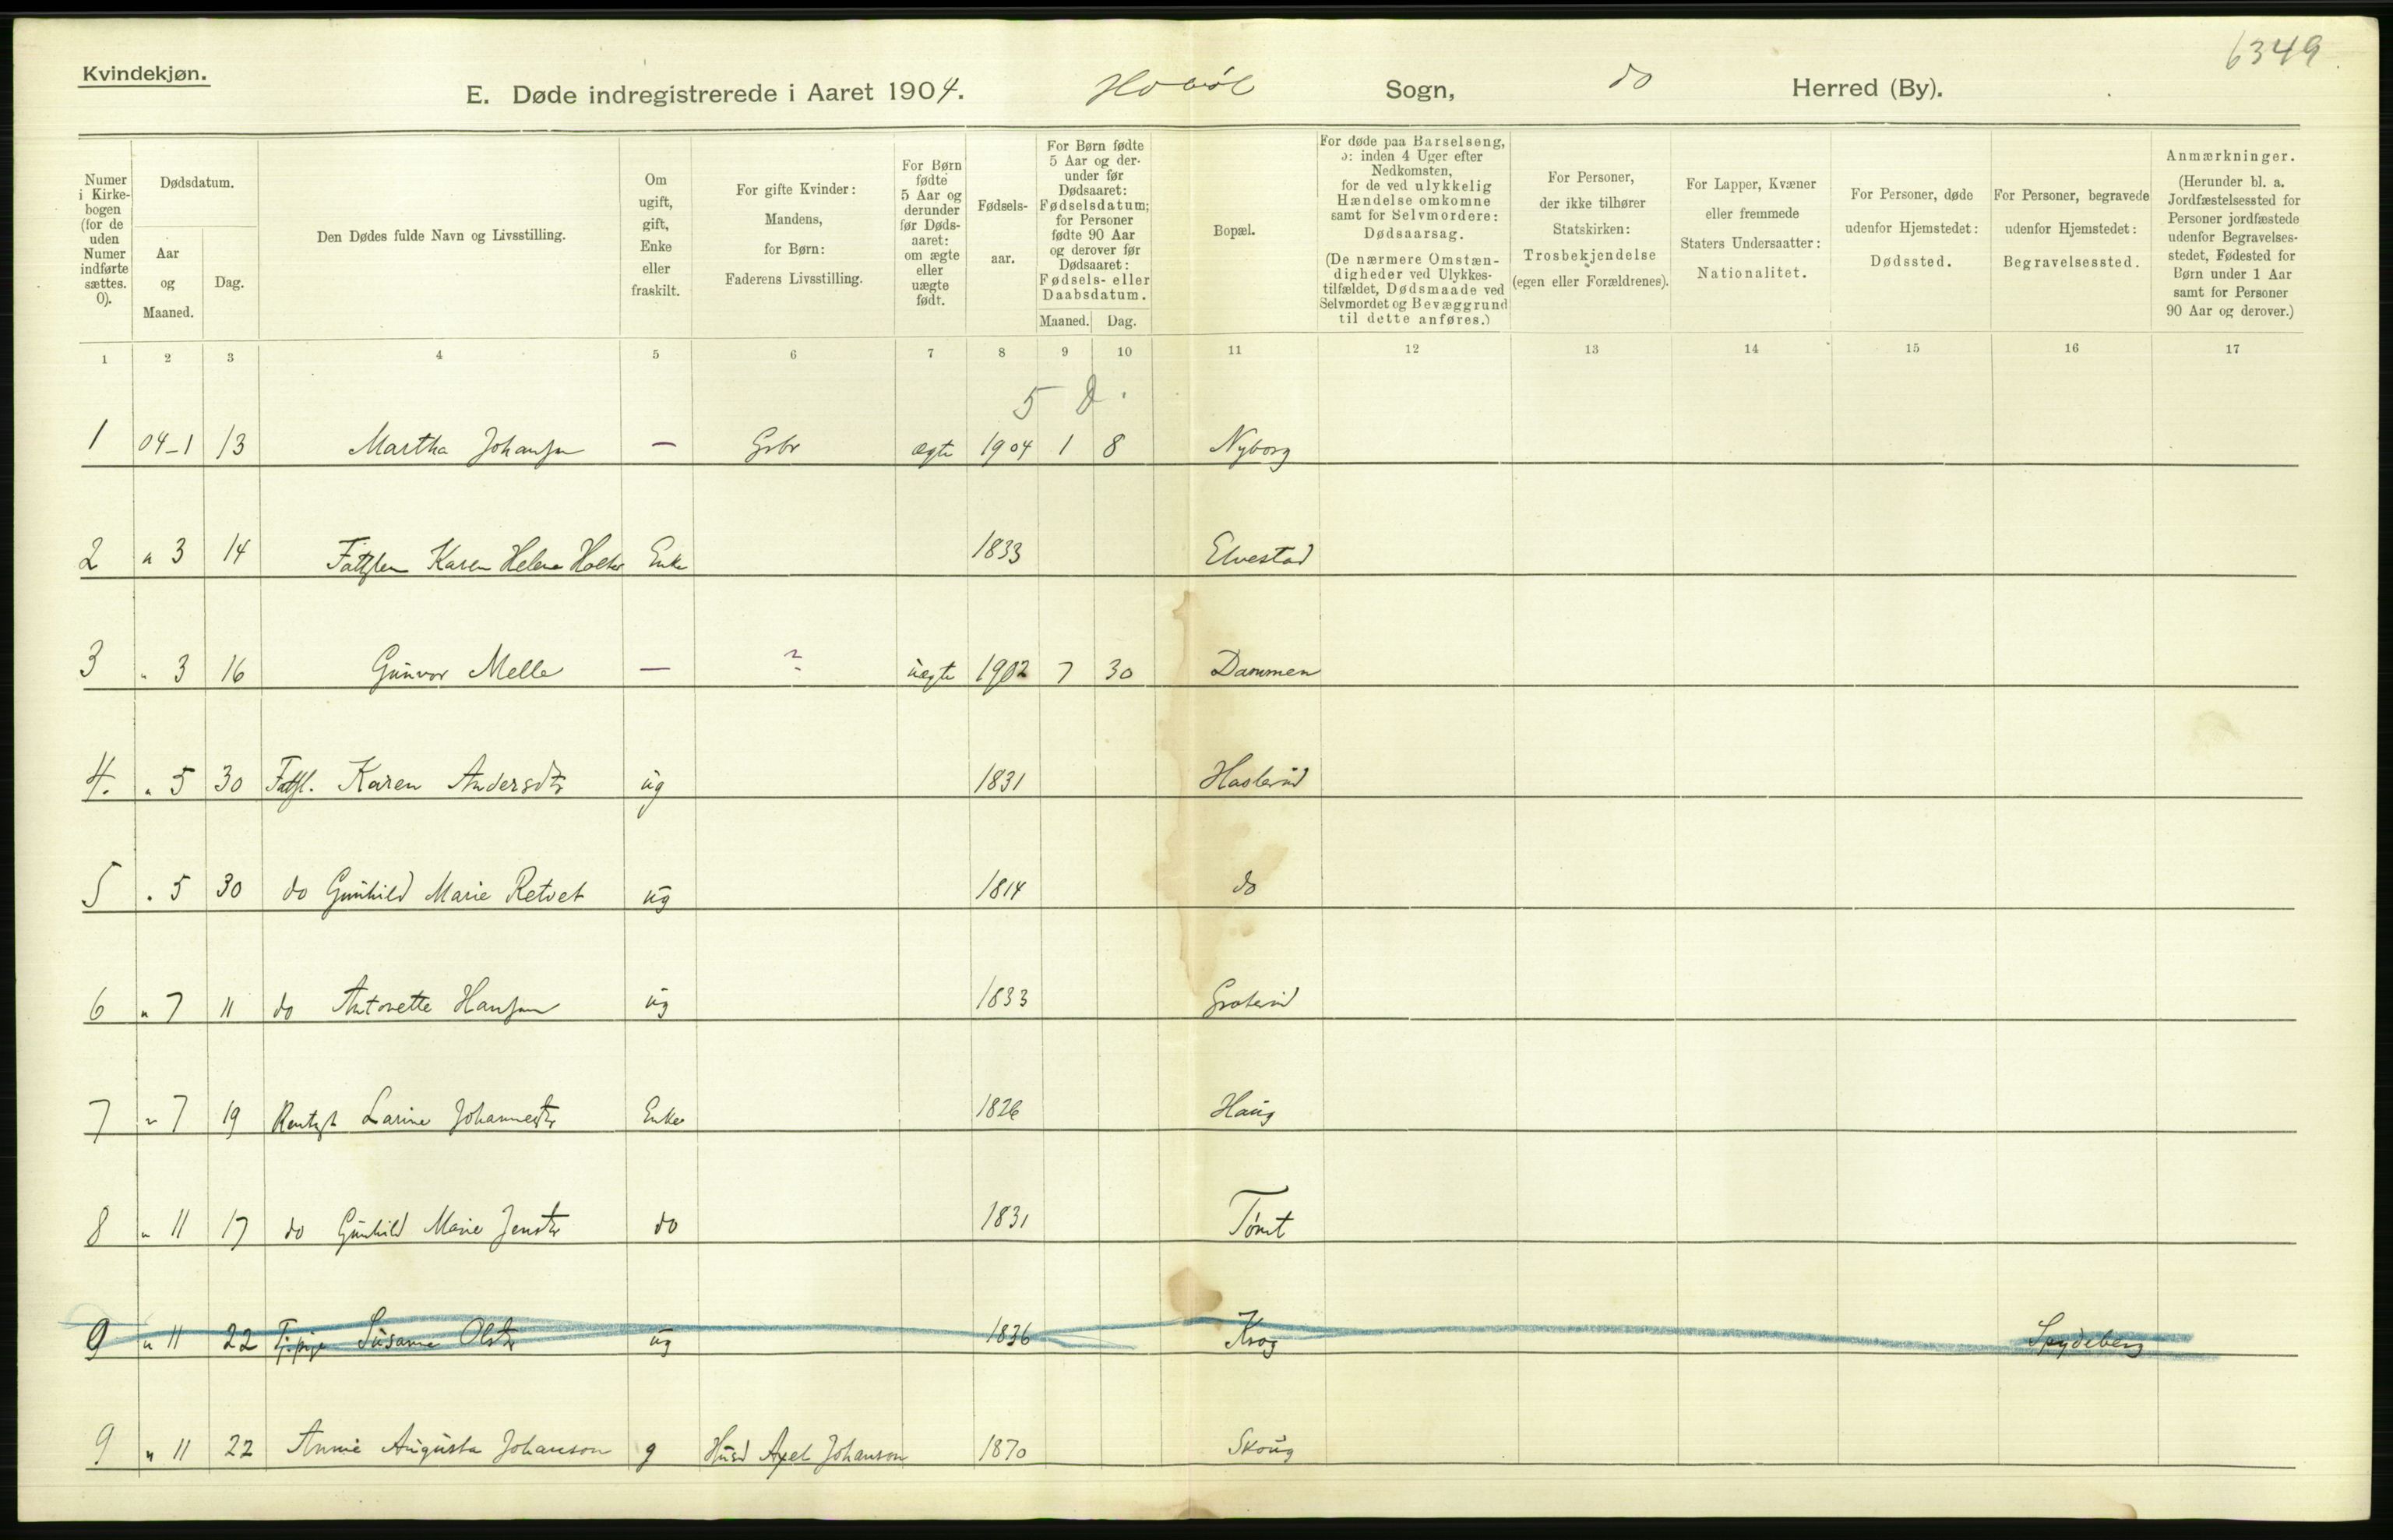 Kvindekjøn.
6349.
E. Døde indregistrerede i Aaret 1904. Hobøl Sogn, do Herred (By).
Numer i Kirke-bogen (for de uden Numer indførte sættes. 0).
Dødsdatum.
Aar og Maaned.
Dag.
Den Dødes fulde Navn og Livsstilling.
Om ugift, gift, Enke eller fraskilt.
For gifte Kvinder: Mandens, for Børn: Faderens Livsstilling.
For Børn fødte 5 Aar og derunder før Døds-aaret: om ægte eller uægte født.
Fødsels-aar.
For Børn fødte 5 Aar og der-under før Dødsaaret: Fødselsdatum; for Personer fødte 90 Aar og derover før Dødsaaret: Fødsels- eller Daabsdatum.
Maaned. Dag.
Bopæl.
For døde paa Barselseng, ɔ: inden 4 Uger efter Nedkomsten, for de ved ulykkelig Hændelse omkomne samt for Selvmordere: Dødsaarsag. (De nærmere Omstæn-digheder ved Ulykkes-tilfældet, Dødsmaade ved Selvmordet og Bevæggrund til dette anføres.)
For Personer, der ikke tilhører Statskirken: Trosbekjendelse (egen eller Forældrenes).
For Lapper, Kvæner eller fremmede Staters Undersaatter: Nationalitet.
For Personer, døde udenfor Hjemstedet: Dødssted.
For Personer, begravede udenfor Hjemstedet: Begravelsessted.
Anmærkninger. (Herunder bl. a. Jordfæstelsessted for Personer jordfæstede udenfor Begravelses-stedet, Fødested for Børn under 1 Aar samt for Personer 90 Aar og derover.)
1 2 3 4 5 6 7 8 9 10 11 12 13 14 15 16 17
5 D.
1 04-1 13 Martha Johansen — Gbr ægte 1904 1 8 Nyborg
2 " 3 14 Fattiglem Karen Helene Holter Enke 1833 Elvestad
3 " 3 16 Gunvor Melle — ? uægte 1902 7 30 Dammen
4. " 5 30 Fattigl. Karen Andersdtr ug 1831
5 " 5 30 do Gunhild Marie Retvet ug 1814 do
6 " 7 11 do Antonette Hansen ug 1833
7 " 7 19 Larine Johannesdtr Enke 1826 Haug
8 " 11 17 do Gunhild Marie Jensdtr do 1831 Tomt
9 " 11 22 Tj.pige Susanne Olsdtr ug 1836 Krog Spydeberg
9 " 11 22 Annie Augusta Johanson g Husd Axel Johanson 1870 Skoug